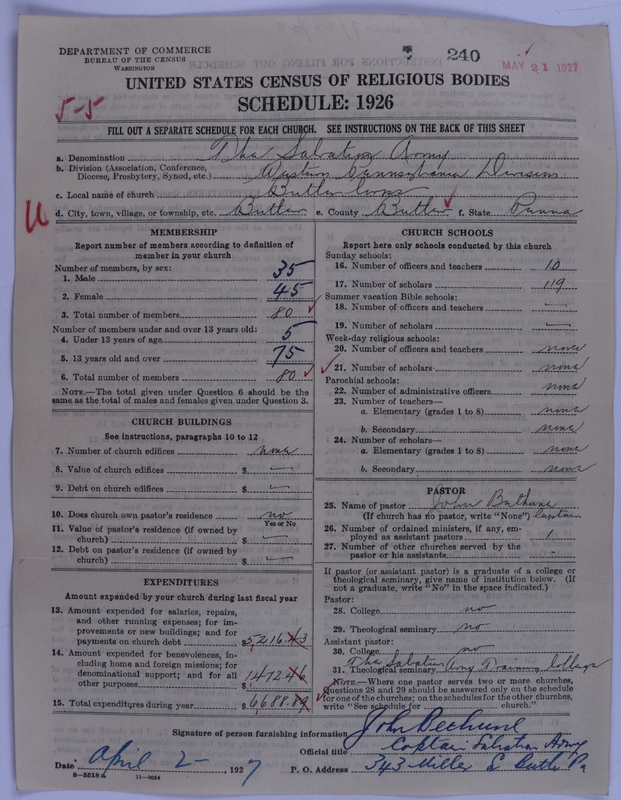 DEPARTMENT OF COMMERCE
BUREAU OF THE CENSUS
WASHINGTON
240
MAY 21 1927
UNITED STATES CENSUS OF RELIGIOUS BODIES
SCHEDULE: 1926
5-5
FILL OUT A SEPARATE SCHEDULE FOR EACH CHURCH. SEE INSTRUCTIONS ON THE BACK OF THIS SHEET
a. Denomination The Salvation Army
b. Division (Association, Conference, Diocese, Presbytery, Synod, etc.) Western Pennsylvania Division
c. Local name of church Butler Corps
d. City, town, village, or township, etc. Butler e. County Butler f. State Penna
U
MEMBERSHIP
Report number of members according to definition of member in your church
Number of members, by sex:
1. Male 35
2. Female 45
3. Total number of members 80
Number of members under and over 13 years old:
4. Under 13 years of age 5
5. 13 years old and over 75
6. Total number of members 80
NOTE.—The total given under Question 6 should be same as the total of males and females given under Question 3.
CHURCH BUILDINGS
See instructions, paragraphs 10 to 12
7. Number of church edifices none
8. Value of church edifices $ —
9. Debt on church edifices $ —
10. Does church own pastor's residence no
Yes or No
11. Value of pastor's residence (if owned by church) $ —
12. Debt on pastor's residence (if owned by church) $ —
EXPENDITURES
Amount expended by your church during last fiscal year
13. Amount expended for salaries, repairs, and other running expenses; for improvements or new buildings; and for payments on church debt $ 5,216.43
14. Amount expended for benevolences, including home and foreign missions; for denominational support; and for all other purposes $ 1472.46
15. Total expenditures during year $ 6,688.89
CHURCH SCHOOLS
Report here only schools conducted by this church
Sunday schools:
16. Number of officers and teachers 10
17. Number of scholars 119
Summer vacation Bible schools:
18. Number of officers and teachers —
19. Number of scholars —
Week-day religious schools:
20. Number of officers and teachers none
21. Number of scholars none
Parochial schools:
22. Number of administrative officers none
23. Number of teachers—
a. Elementary (grades 1 to 8) none
b. Secondary none
24. Number of scholars—
a. Elementary (grades 1 to 8) none
b. Secondary none
PASTOR
25. Name of pastor John
(If church has no pastor, write "None") Captain
26. Number of ordained ministers, if any, employed as assistant pastors 1
27. Number of other churches served by the pastor or his assistants -
If pastor (or assistant pastor) is a graduate of a college or theological seminary, give name of institution below. (If not a graduate, write "No" in the space indicated.)
Pastor:
28. College no
29. Theological seminary no
Assistant pastor:
30. College no
31. Theological seminary The Salvation Army Training College
NOTE.—Where one pastor serves two or more churches, Questions 28 and 29 should be answered only on the schedule for one of the churches; on the schedules for the other churches, write "See schedule for church."
Signature of person furnishing information John
Official title Captain Salvation Army
Date April 2- , 1927 P. O. Address 343 Miller S Butler Pa
6-5518a 11-9054